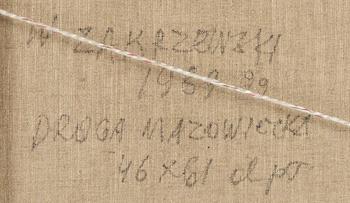 W ZAKRZEWSKI
1989
DROGA MAZOWIECKA
46x61 ol pł